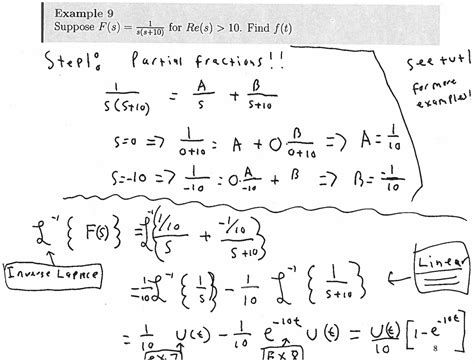 Example 9
Suppose F(s) = 1/(s(s+10)) for Re(s) > 10. Find f(t)
Step1: Partial fractions!!
see tut1
for more
examples!
1/(s(s+10)) = A/s + B/(s+10)
s=0 => 1/(0+10) = A + 0·B/(0+10) => A = 1/10
s=-10 => 1/-10 = 0·A/-10 + B => B = -1/10
ℒ⁻¹{F(s)} = ℒ⁻¹{(1/10)/s + (-1/10)/(s+10)}
Inverse Lapnce
= 1/10 ℒ⁻¹{1/s} - 1/10 ℒ⁻¹{1/(s+10)}
Linear
= 1/10 U(t) - 1/10 e^-10t U(t) = U(t)/10 [1-e^-10t]
Ex.7
Ex 8
8